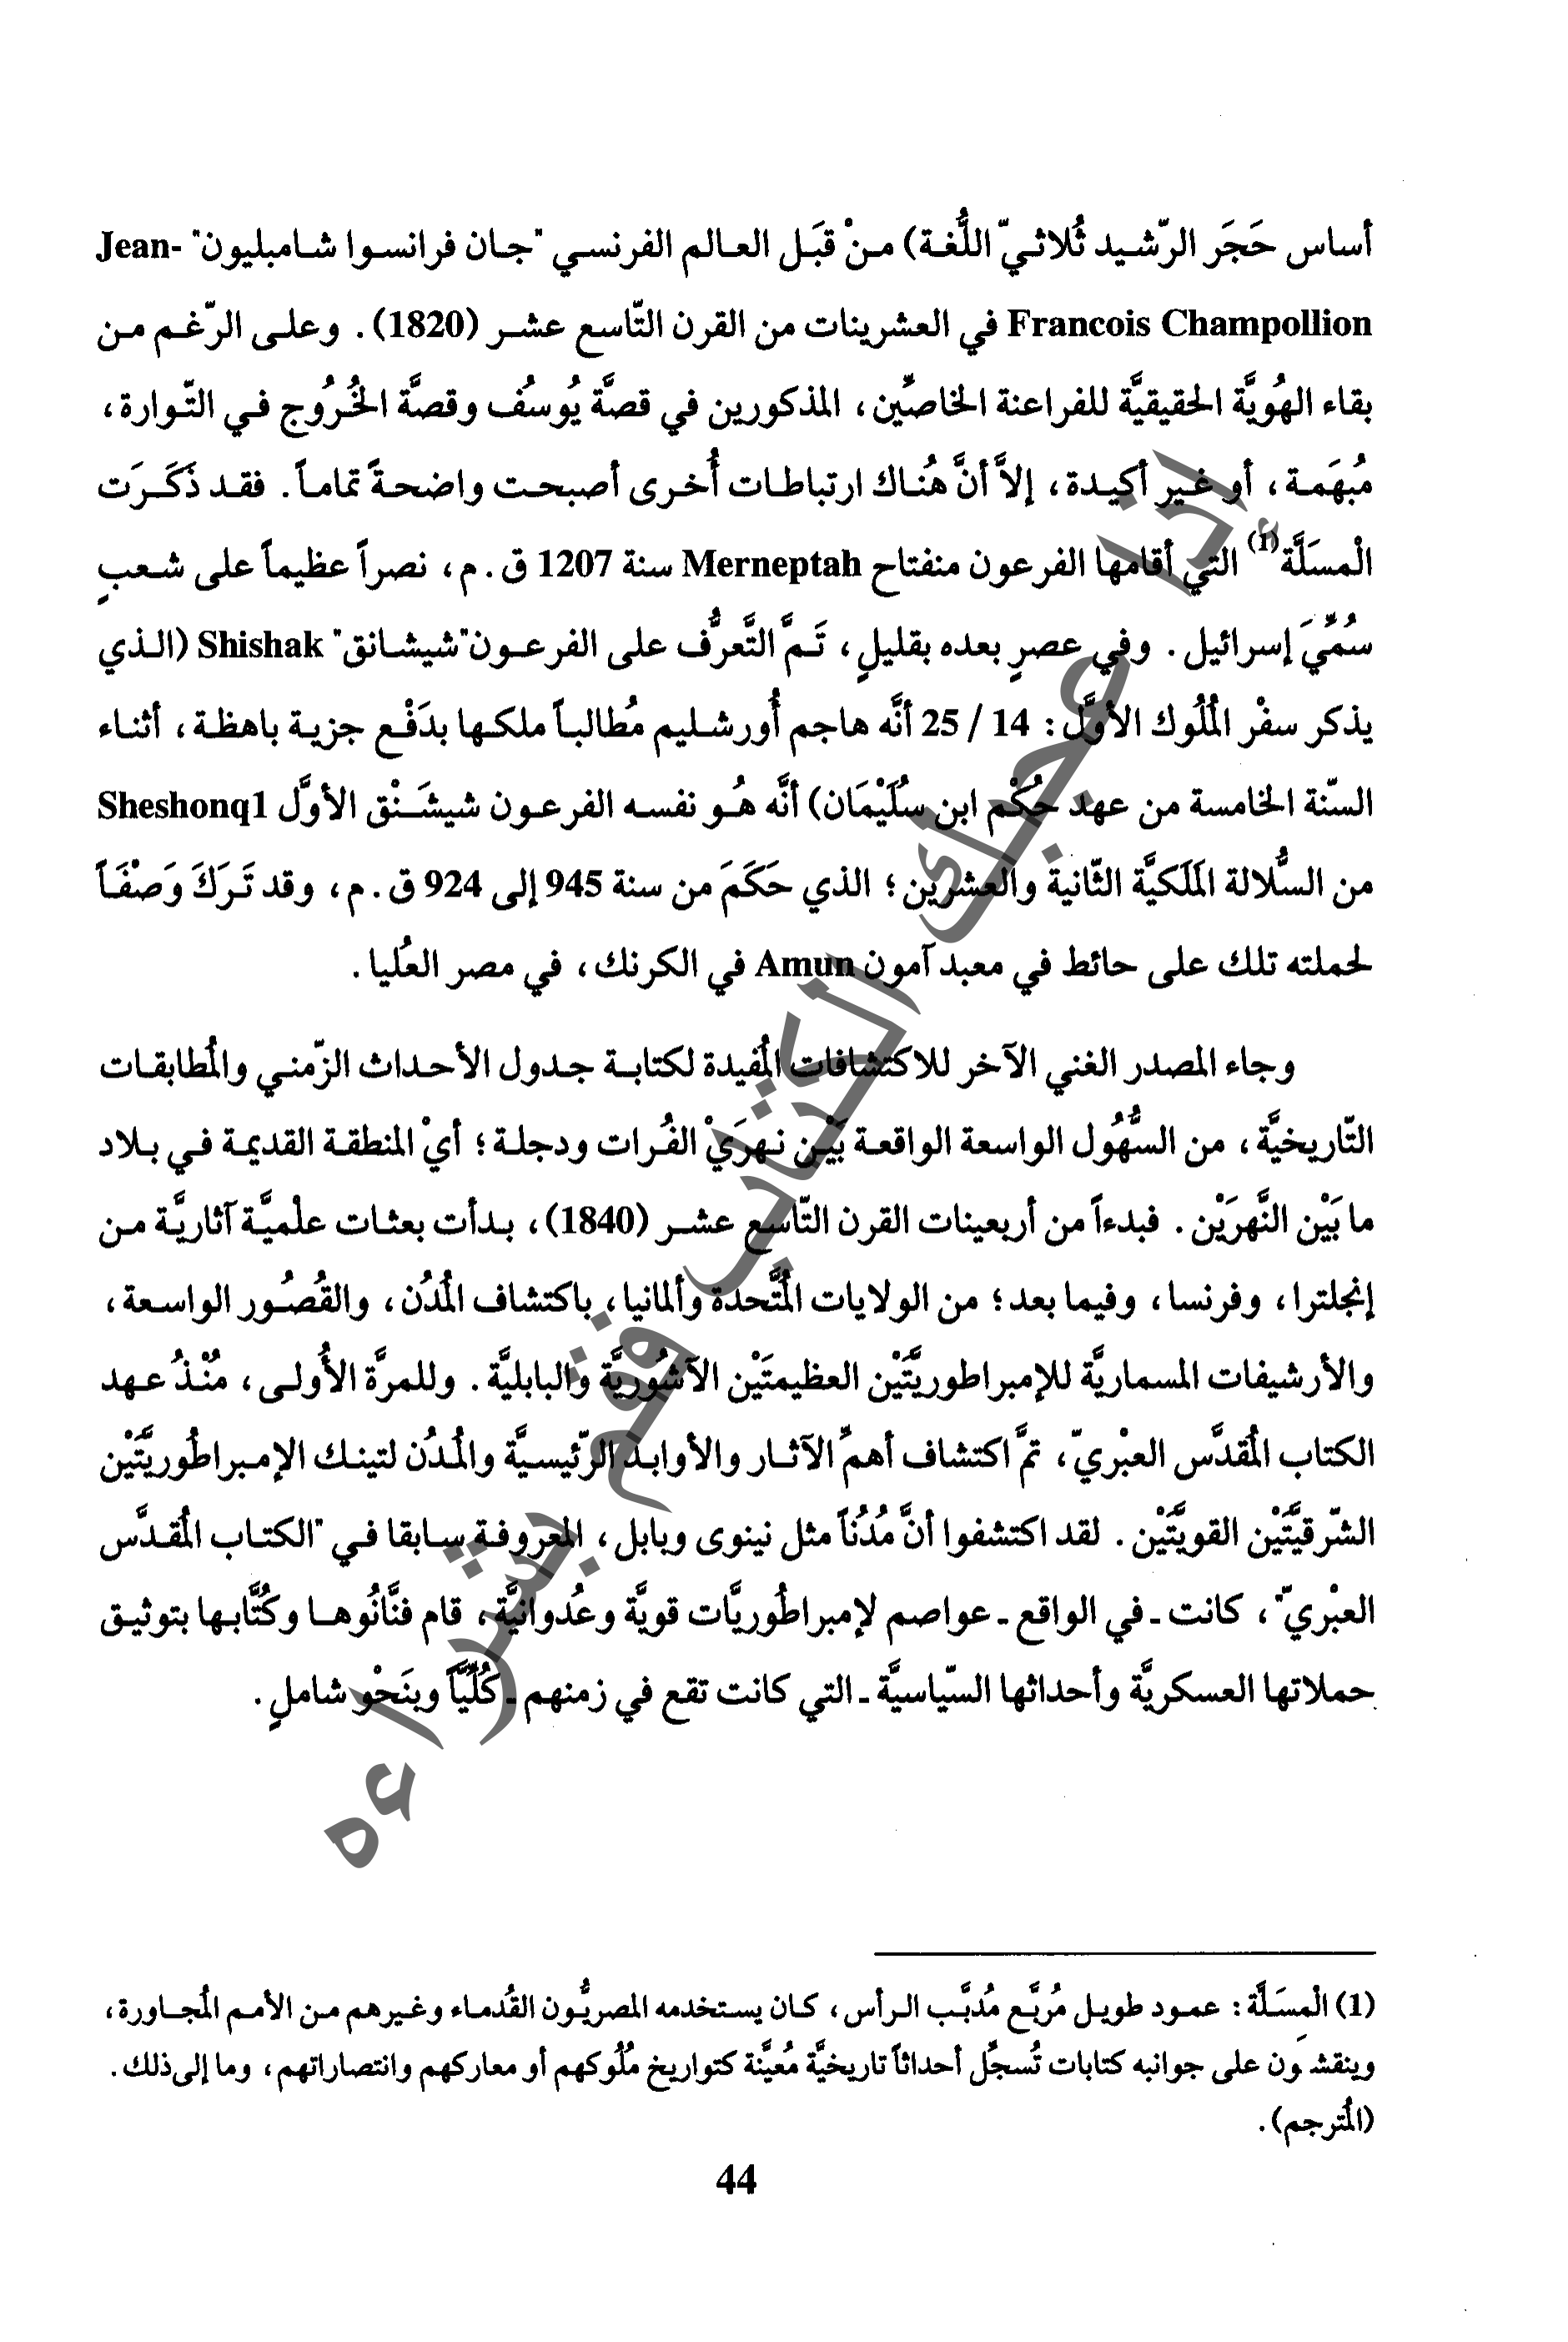 أساس حَجَر الرّشيد ثُلاثيّ اللُّغة) منْ قبَل العالم الفرنسي "جان فرانسوا شامبليون" Jean-
Francois Champollion في العشرينات من القرن التّاسع عشر (1820). وعلى الرّغم من
بقاء الهُويَّة الحقيقيَّة للفراعنة الخاصِّين، المذكورين في قصَّة يُوسُف وقصَّة الخُرُوج في التّوارة،
مُبهَمة، أو غير أكيدة، إلاَّ أنَّ هُناك ارتباطات أُخرى أصبحت واضحةً تماماً. فقد ذَكَرَت
الْمسَلَّة(1) التي أقامها الفرعون منفتاح Merneptah سنة 1207 ق.م، نصراً عظيماً على شعبٍ
سُمِّيَ إسرائيل. وفي عصرٍ بعده بقليلٍ، تَمَّ التَّعرُّف على الفرعون"شيشانق" Shishak (الذي
يذكر سفْر المُلُوك الأوَّل: 14 / 25 أنَّه هاجم أُورشليم مُطالباً ملكها بدَفْع جزية باهظة، أثناء
السّنة الخامسة من عهد حُكْم ابن سُلَيْمَان) أنَّه هُو نفسه الفرعون شيشَنْق الأوَّل Sheshonq1
من السُّلالة المَلَكيَّة الثّانية والعشرين؛ الذي حَكَمَ من سنة 945 إلى 924 ق.م، وقد تَرَكَ وَصْفَاً
لحملته تلك على حائط في معبد آمون Amun في الكرنك، في مصر العُليا.
وجاء المصدر الغني الآخر للاكتشافات المُفيدة لكتابة جدول الأحداث الزّمني والمُطابقات
التّاريخيَّة، من السُّهُول الواسعة الواقعة بَيْن نهرَيْ الفُرات ودجلة؛ أيْ المنطقة القديمة في بلاد
ما بَيْن النَّهرَيْن. فبدءاً من أربعينات القرن التّاسع عشر (1840)، بدأت بعثات علْميَّة آثاريَّة من
إنجلترا، وفرنسا، وفيما بعد؛ من الولايات المُتَّحدة وألمانيا، باكتشاف المُدُن، والقُصُور الواسعة،
والأرشيفات المسماريَّة للإمبراطوريَّتَيْن العظيمتَيْن الآشُوريَّة والبابليَّة. وللمرَّة الأُولى، مُنْذُ عهد
الكتاب المُقدَّس العبْريّ، تمَّ اكتشاف أهمِّ الآثار والأوابد الرّئيسيَّة والمُدُن لتينك الإمبراطُوريَّتَيْن
الشّرقيَّتَيْن القويَّتَيْن. لقد اكتشفوا أنَّ مُدُنَاً مثل نينوى وبابل، المعروفة سابقا في "الكتاب المُقدَّس
العبْريّ"، كانت ـ في الواقع ـ عواصم لإمبراطُوريَّات قويَّة وعُدوانيَّة، قام فنَّانُوها وكُتَّابها بتوثيق
حملاتها العسكريَّة وأحداثها السّياسيَّة ـ التي كانت تقع في زمنهم ـ كُلِّيَّاً وبنَحْو شاملٍ.
أذا عجبك الكتاب قم بشراءه
(1) الْمسَلَّة: عمود طويل مُربَّع مُدبَّب الرأس، كان يستخدمه المصريُّون القُدماء وغيرهم من الأمم المُجاورة،
وينقشون على جوانبه كتابات تُسجِّل أحداثاً تاريخيَّة مُعيَّنة كتواريخ مُلُوكهم أو معاركهم وانتصاراتهم، وما إلى ذلك.
(المُترجم).
44